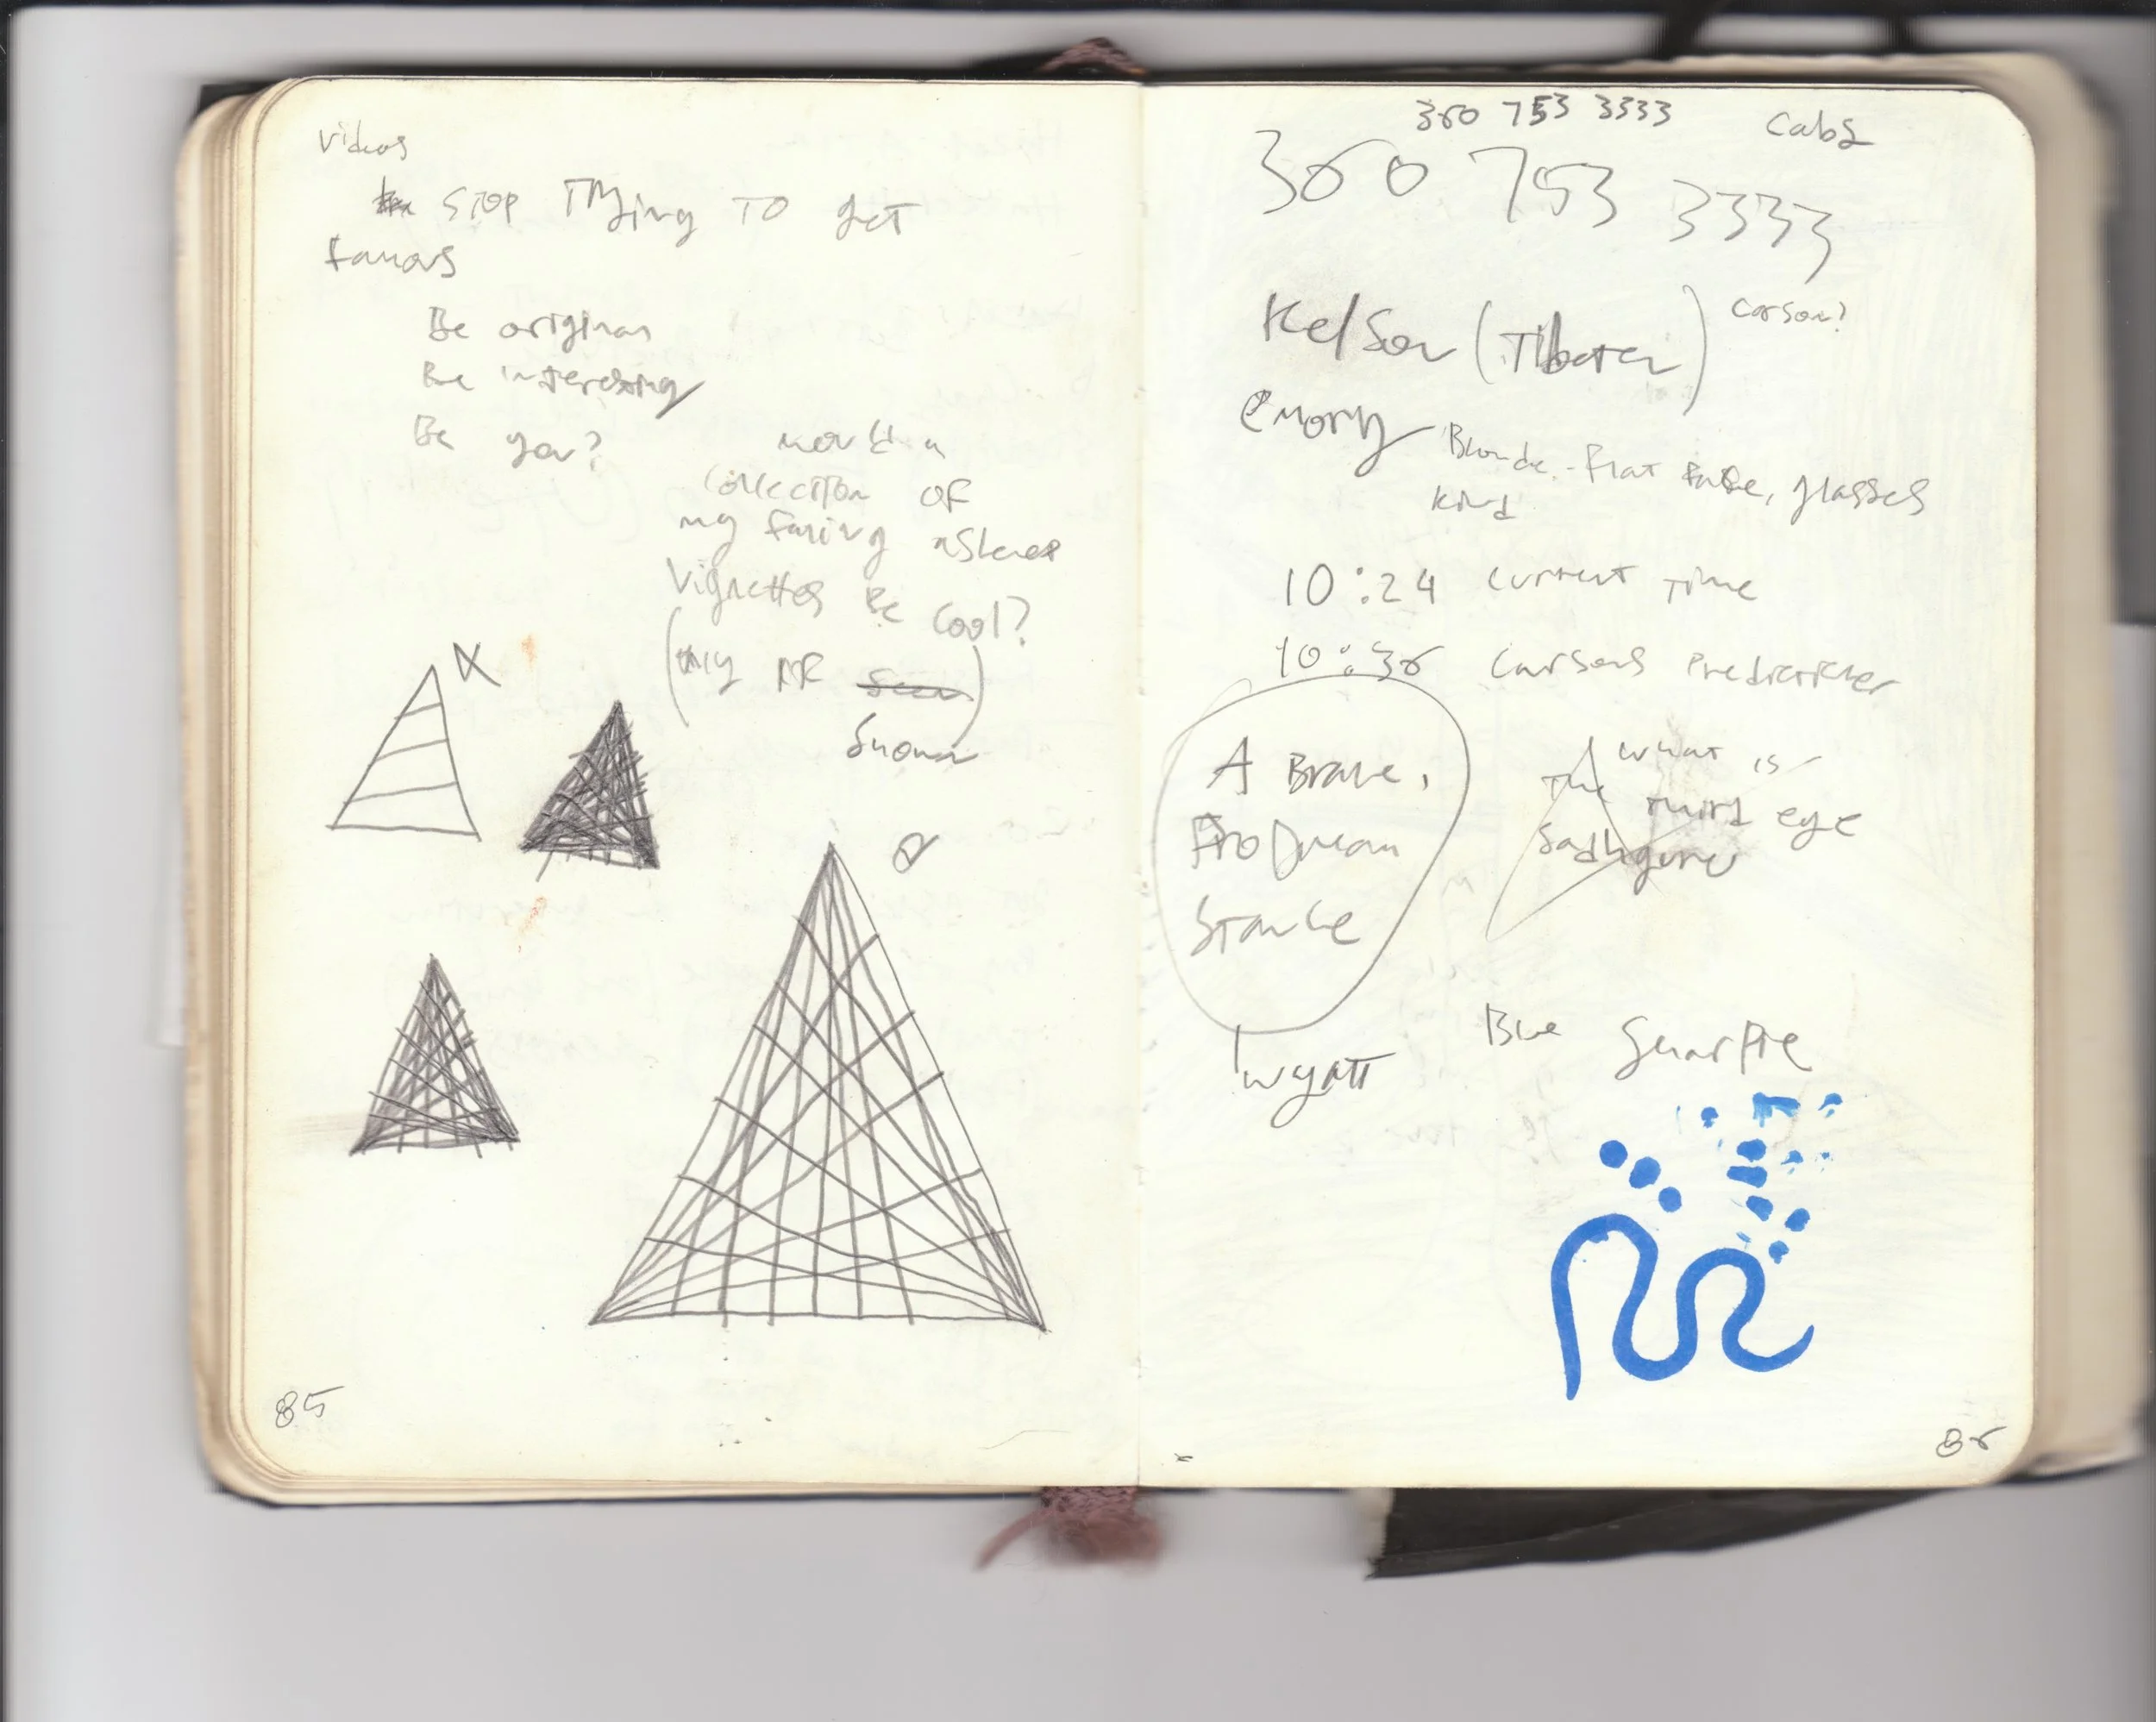 Videos
STOP TRYing TO get
famous
Be original
Be interesting
Be you?
would a
collection of
my falling asleep
Vignettes Be Cool?
(my AF
85
360 753 3333
Cabs
360 753 3333
Kelson (Tibeten)
Carson?
Emory
Blonde. Flat tube, glasses
kind
10:24 current time
10:36 Carsons Predictions
A Brave,
Stance
what is
The third eye
Sadhguru
wyatt
Blue Sharpie
86